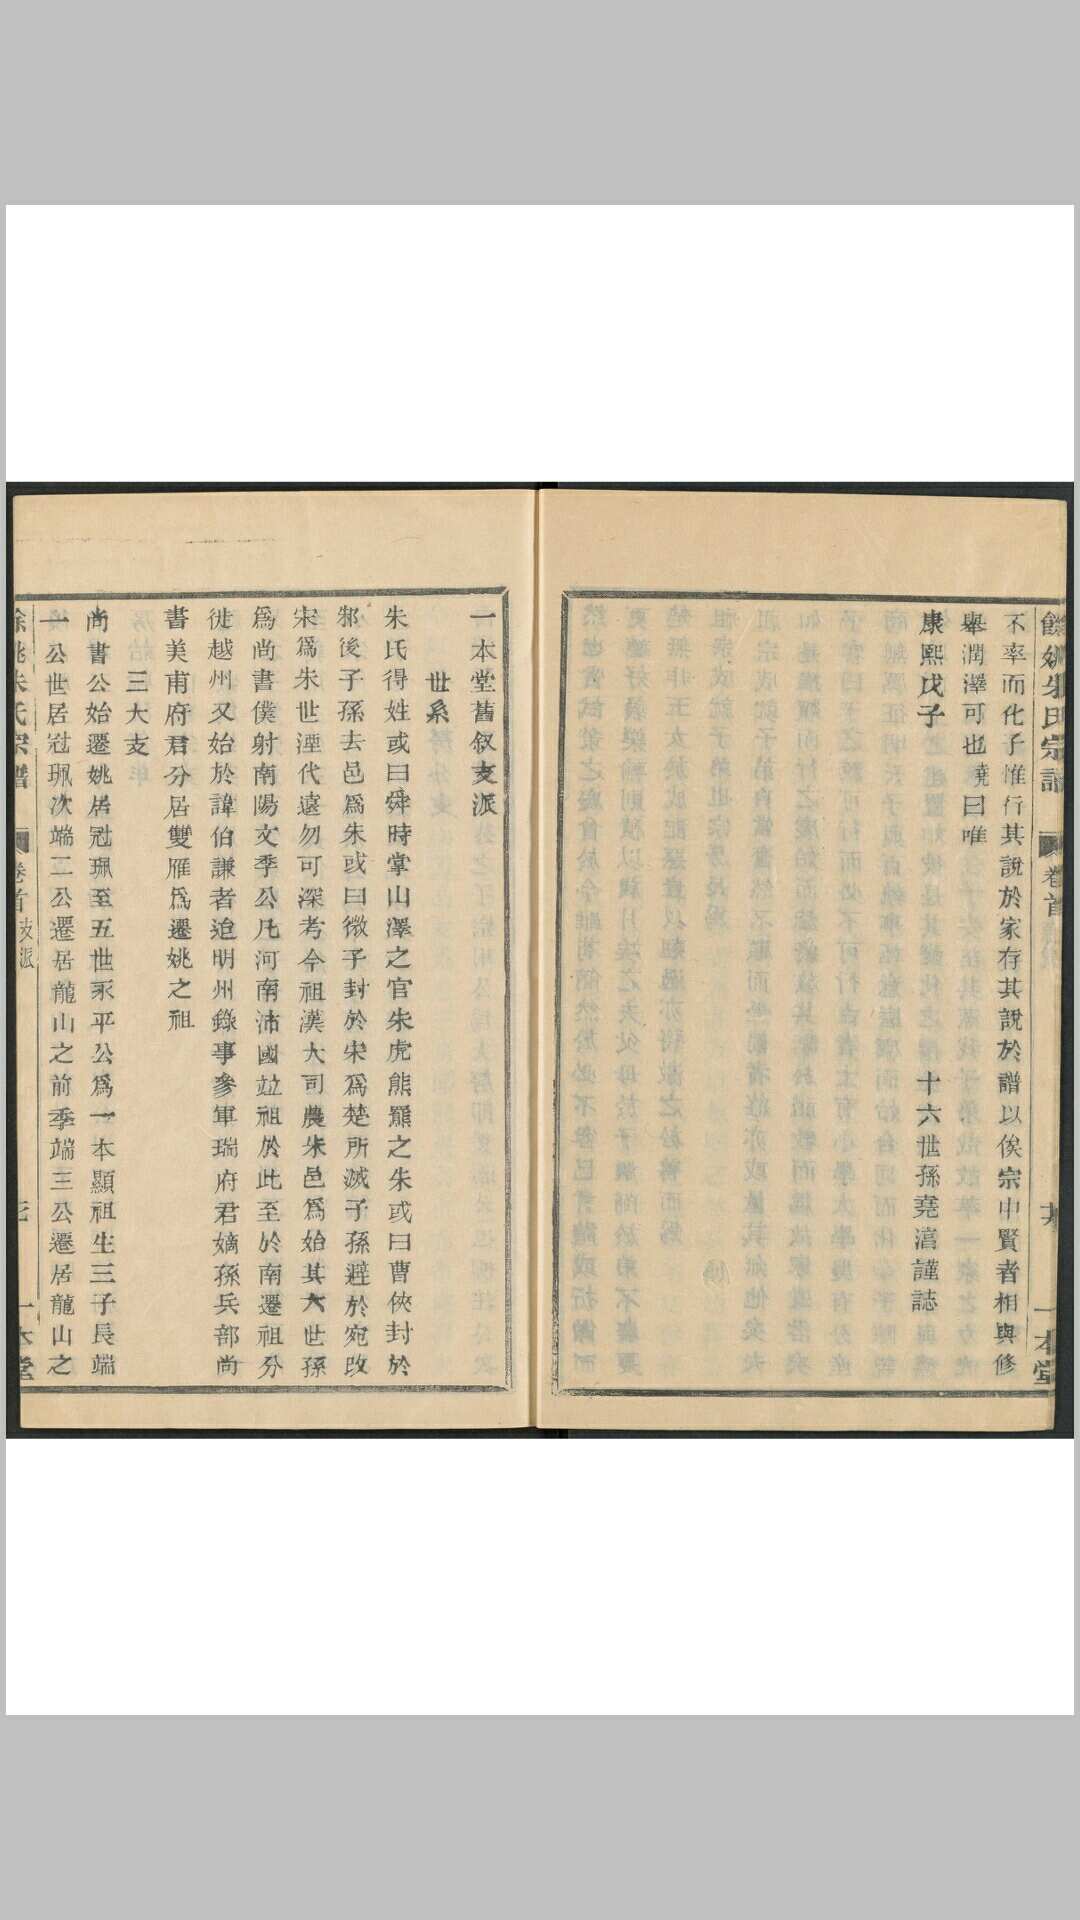 餘姚朱氏宗譜 卷首 一本堂
不率而化子惟行其說於家存其說於譜以俟宗中賢者相與修
舉潤澤可也曉曰唯
康熙戊子 十六世孫堯㵎謹誌
一本堂舊叙支派
世系
朱氏得姓或曰舜時掌山澤之官朱虎熊羆之朱或曰曹俠封於
邾後子孫去邑爲朱或曰微子封於宋爲楚所滅子孫避於宛改
宋爲朱世湮代遠勿可深考今祖漢大司農朱邑爲始其六世孫
爲尚書僕射南陽文季公凡河南沛國竝祖於此至於南遷祖分
徙越州又始於諱伯謙者迨明州錄事參軍瑞府君嫡孫兵部尚
書美甫府君分居雙雁爲遷姚之祖
三大支
尚書公始遷姚居冠珮至五世永平公爲一本顯祖生三子長端
一公世居冠珮次端二公遷居龍山之前季端三公遷居龍山之
餘姚朱氏宗譜 卷首 支派 一本堂